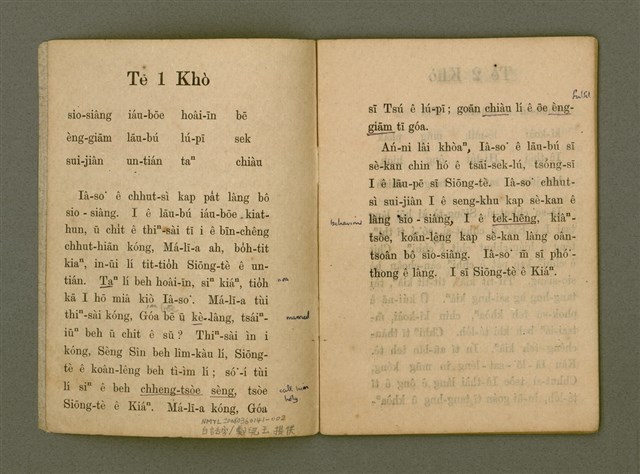 Tē 1 Khò
sio-siâng iáu-bōe hoâi-īn bē
èng-giām lāu-bú lú-pī sek
sui-jiân un-tián taⁿ chiàu
Ià-so͘ ê chhut-sì kap pa̍t lâng bô
sio-siâng. I ê lāu-bú iáu-bōe kiat-
hun, ū chi̍t ê thiⁿ-sài tī i ê bīn-chêng
chhut-hiān kóng, Má-lī-a ah, bo̍h-tit
kiaⁿ, in-ūi lí tit-tio̍h Siōng-tè ê un-
tián. Taⁿ lí beh hoâi-īn, siⁿ kiáⁿ, tio̍h
kā I hō miâ kiò Ià-so͘. Má-lī-a tùi
thiⁿ-sài kóng, Góa bē ū kè-lâng, tsáiⁿ-
iūⁿ beh ū chit ê sū? Thiⁿ-sài ìn i
kóng, Sèng Sin beh lîm-kàu lí, Siōng-
tè ê koân-lêng beh tì-ìm lí; só͘-í tùi
lí siⁿ ê beh chheng-tsòe sèng, tsòe
Siōng-tè ê Kiáⁿ. Má-lī-a kóng, Góa
sī Tsú ê lú-pī; goān chiàu lí ê ōe èng-
giām tī góa.
Án-ni lâi khòaⁿ, Ià-so͘ ê lāu-bú sī
sè-kan chin hó ê tsāi-sek-lú, tsóng-sī
I ê lāu-pē sī Siōng-tè. Ià-so͘ chhut-
sì sui-jiân I ê seng-khu kap sè-kan ê
lâng sio-siâng, I ê tek-hēng, kiâⁿ-
tsòe, koân-lêng kap sè-kan lâng oân-
tsoân bô sio-siâng. Ià-so͘ m̄ sī phó͘-
thong ê lâng. I sī Siōng-tè ê Kiáⁿ.